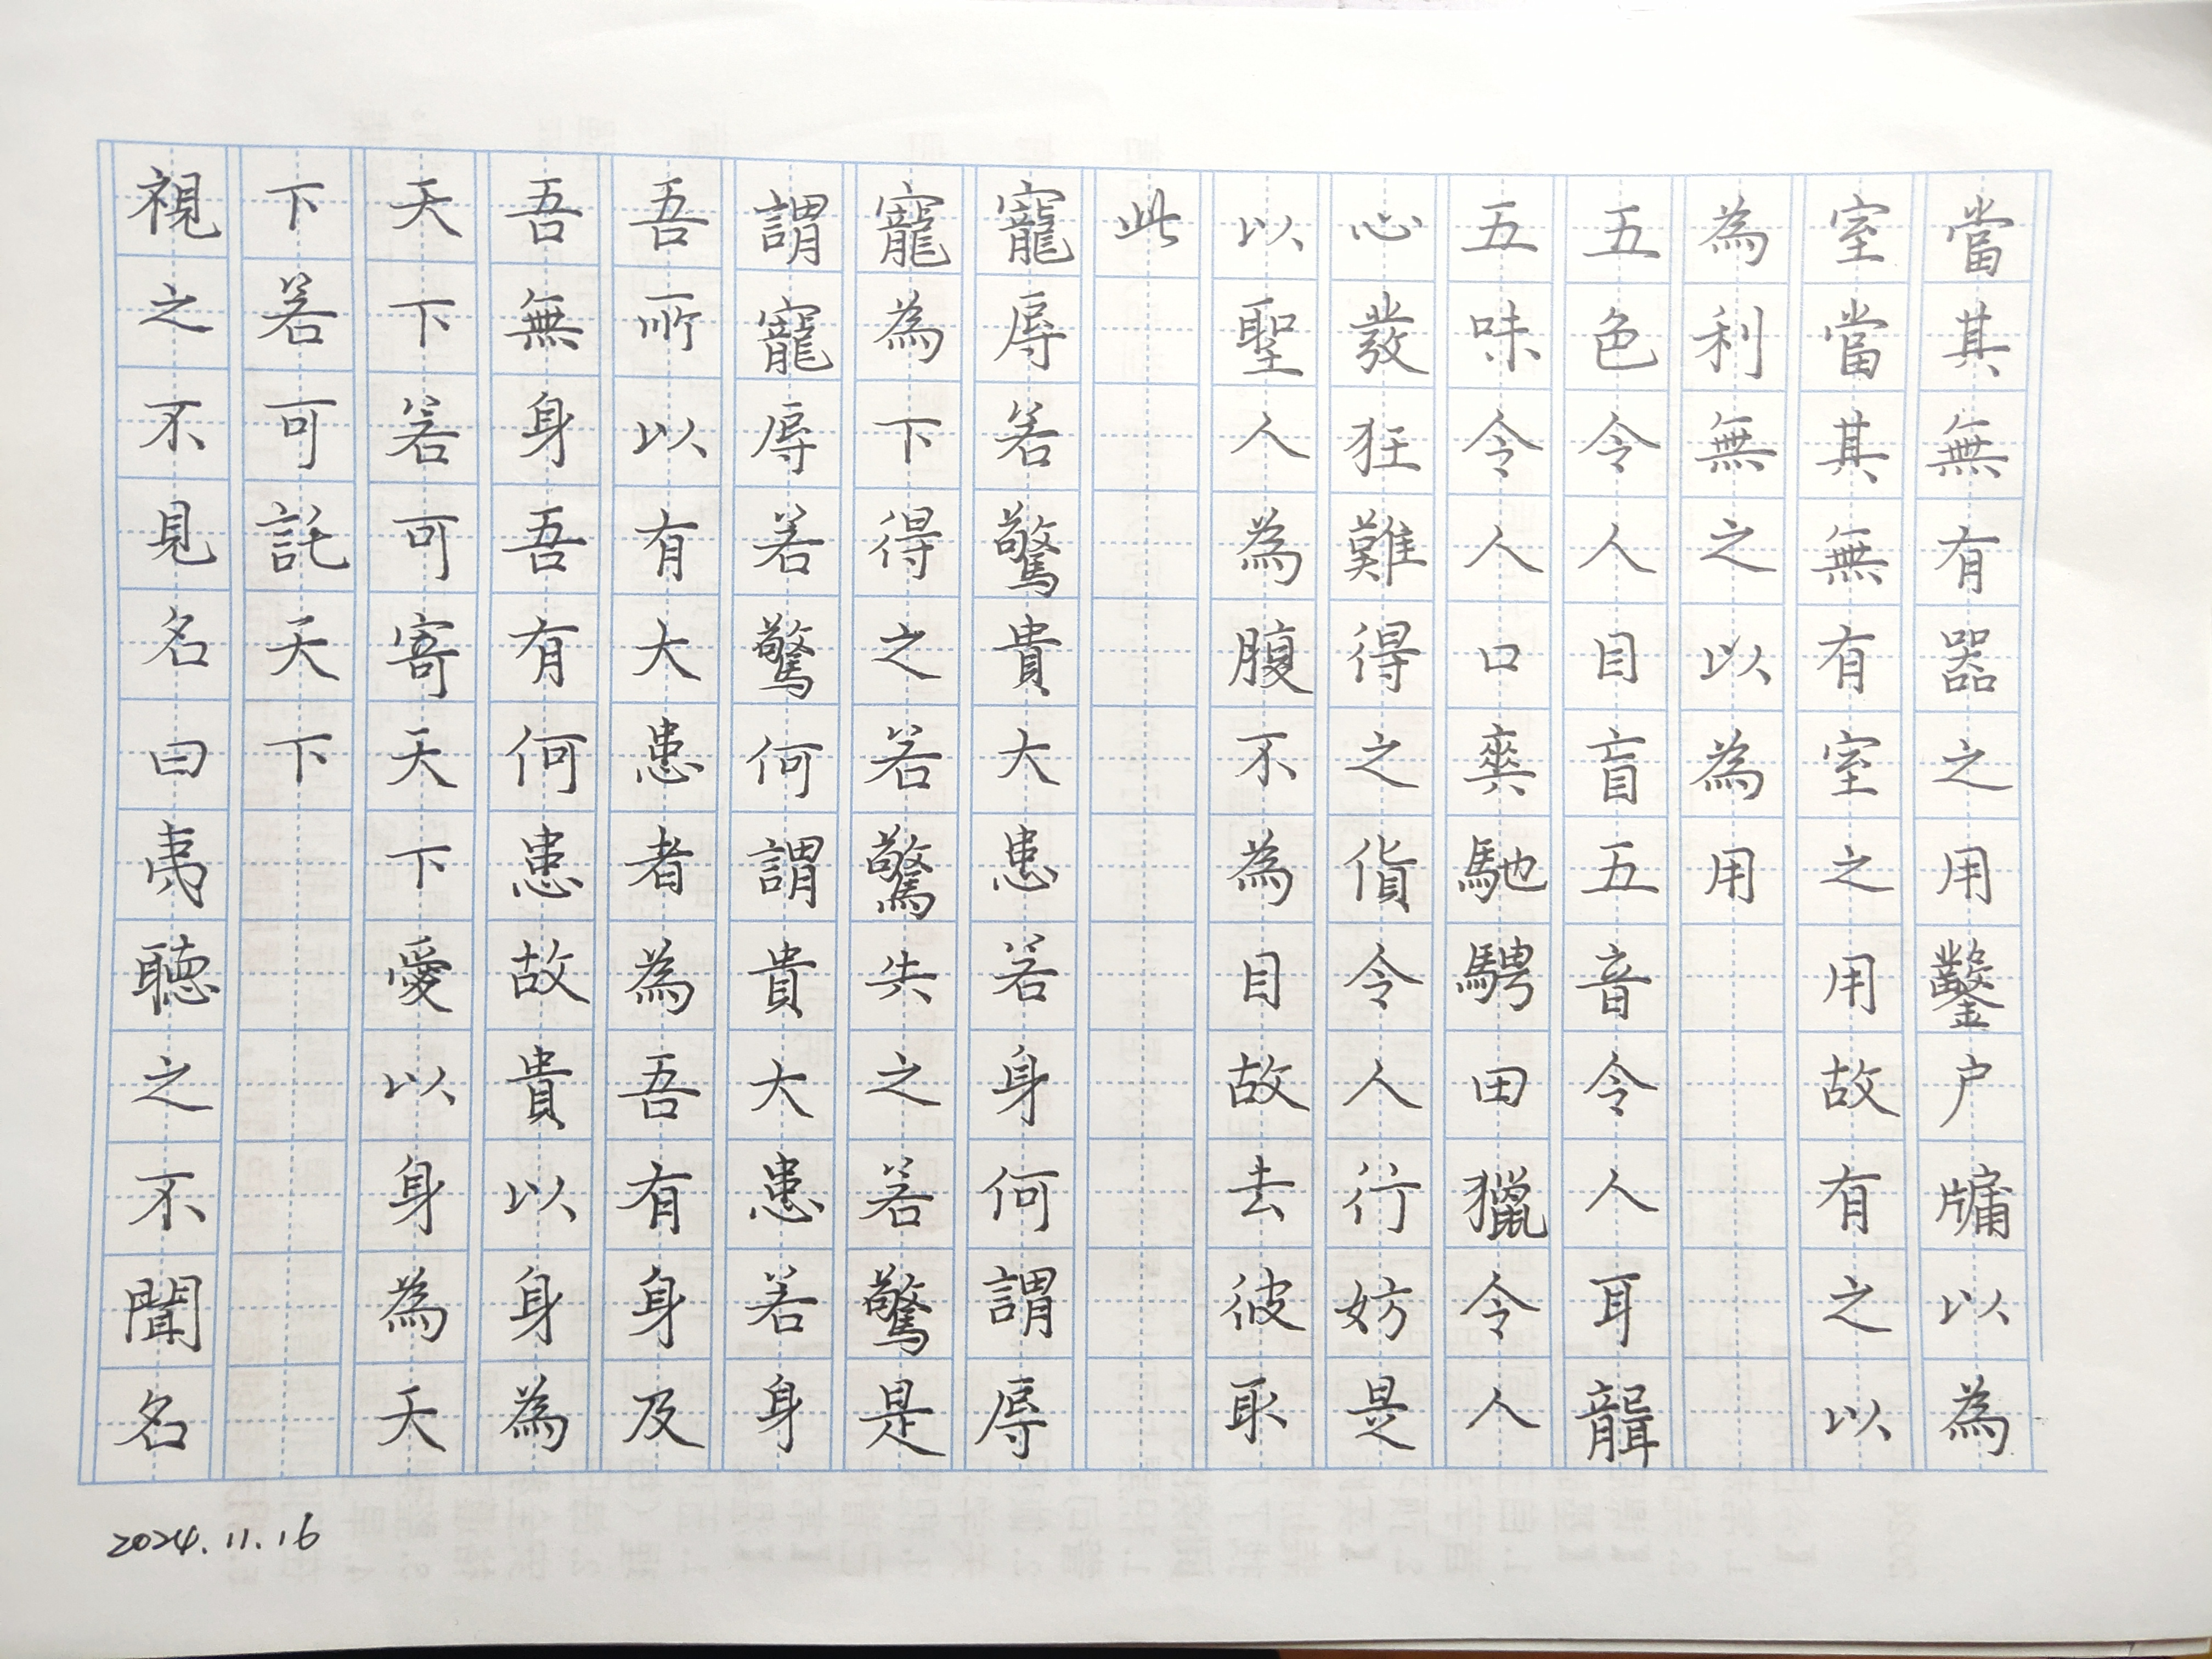 當其無有器之用鑿户牖以為
室當其無有室之用故有之以
為利無之以為用
五色令人目盲五音令人耳聾
五味令人口爽馳騁田獵令人
心發狂難得之貨令人行妨是
以聖人為腹不為目故去彼取
此
寵辱若驚貴大患若身何謂辱
寵為下得之若驚失之若驚是
謂寵辱若驚何謂貴大患若身
吾所以有大患者為吾有身及
吾無身吾有何患故貴以身為
天下若可寄天下愛以身為天
下若可託天下
視之不見名曰夷聽之不聞名
2024.11.16